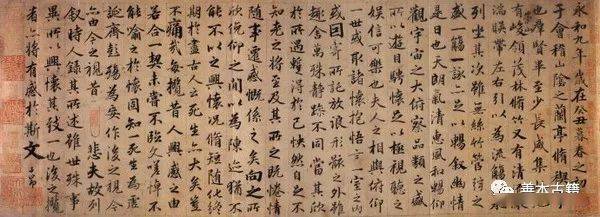 永和九年歲在癸丑暮春之初會
于會稽山陰之蘭亭脩稧事
也羣賢畢至少長咸集此地
有峻領茂林脩竹又有清流激
湍暎帶左右引以為流觴曲水
列坐其次雖無絲竹管弦之
盛一觴一詠亦足以暢敘幽情
是日也天朗氣清惠風和暢仰
觀宇宙之大俯察品類之盛
所以遊目騁懷足以極視聽之
娛信可樂也夫人之相與俯仰
一世或取諸懷抱悟言一室之內
或因寄所託放浪形骸之外雖
趣舍萬殊靜躁不同當其欣
於所遇蹔得於己快然自足不
知老之將至及其所之既惓情
隨事遷感慨係之矣向之所
欣俛仰之間以為陳迹猶不
能不以之興懷況脩短隨化終
期於盡古人云死生亦大矣豈
不痛哉每攬昔人興感之由
若合一契未嘗不臨文嗟悼不
能喻之於懷固知一死生為虛
誕齊彭殤為妄作後之視今
亦由今之視昔悲夫故列
敘時人錄其所述雖世殊事
異所以興懷其致一也後之攬
者亦將有感於斯文 子昂
善本古籍